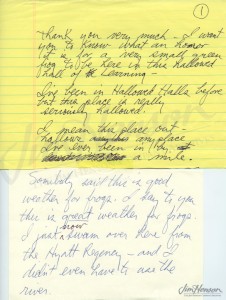 1
Thank you very much – I want
you to know what an honor
it is for a very small green
frog to be here in this hallowed
hall of learning –
I've been in Hallowed Halls before
but this place is really
seriously hallowed.
I mean this place out-
hallows any place
I've ever been in by
a mile.
Somebody said this is good
weather for frogs. I say to you
this is great weather for frogs.
I just now swam over here from
the Hyatt Regency – and I
didn't even have to use the
river.
Jim Henson